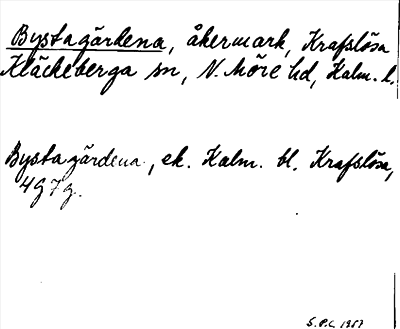 Bystagärdena, åkermark, Krafslösa
Kläckeberga sn, N. Möre hd, Kalm. l.
Bystagärdena, ek. Kalm. bl. Krafslösa,
4G7g.
S.P.C. 1957